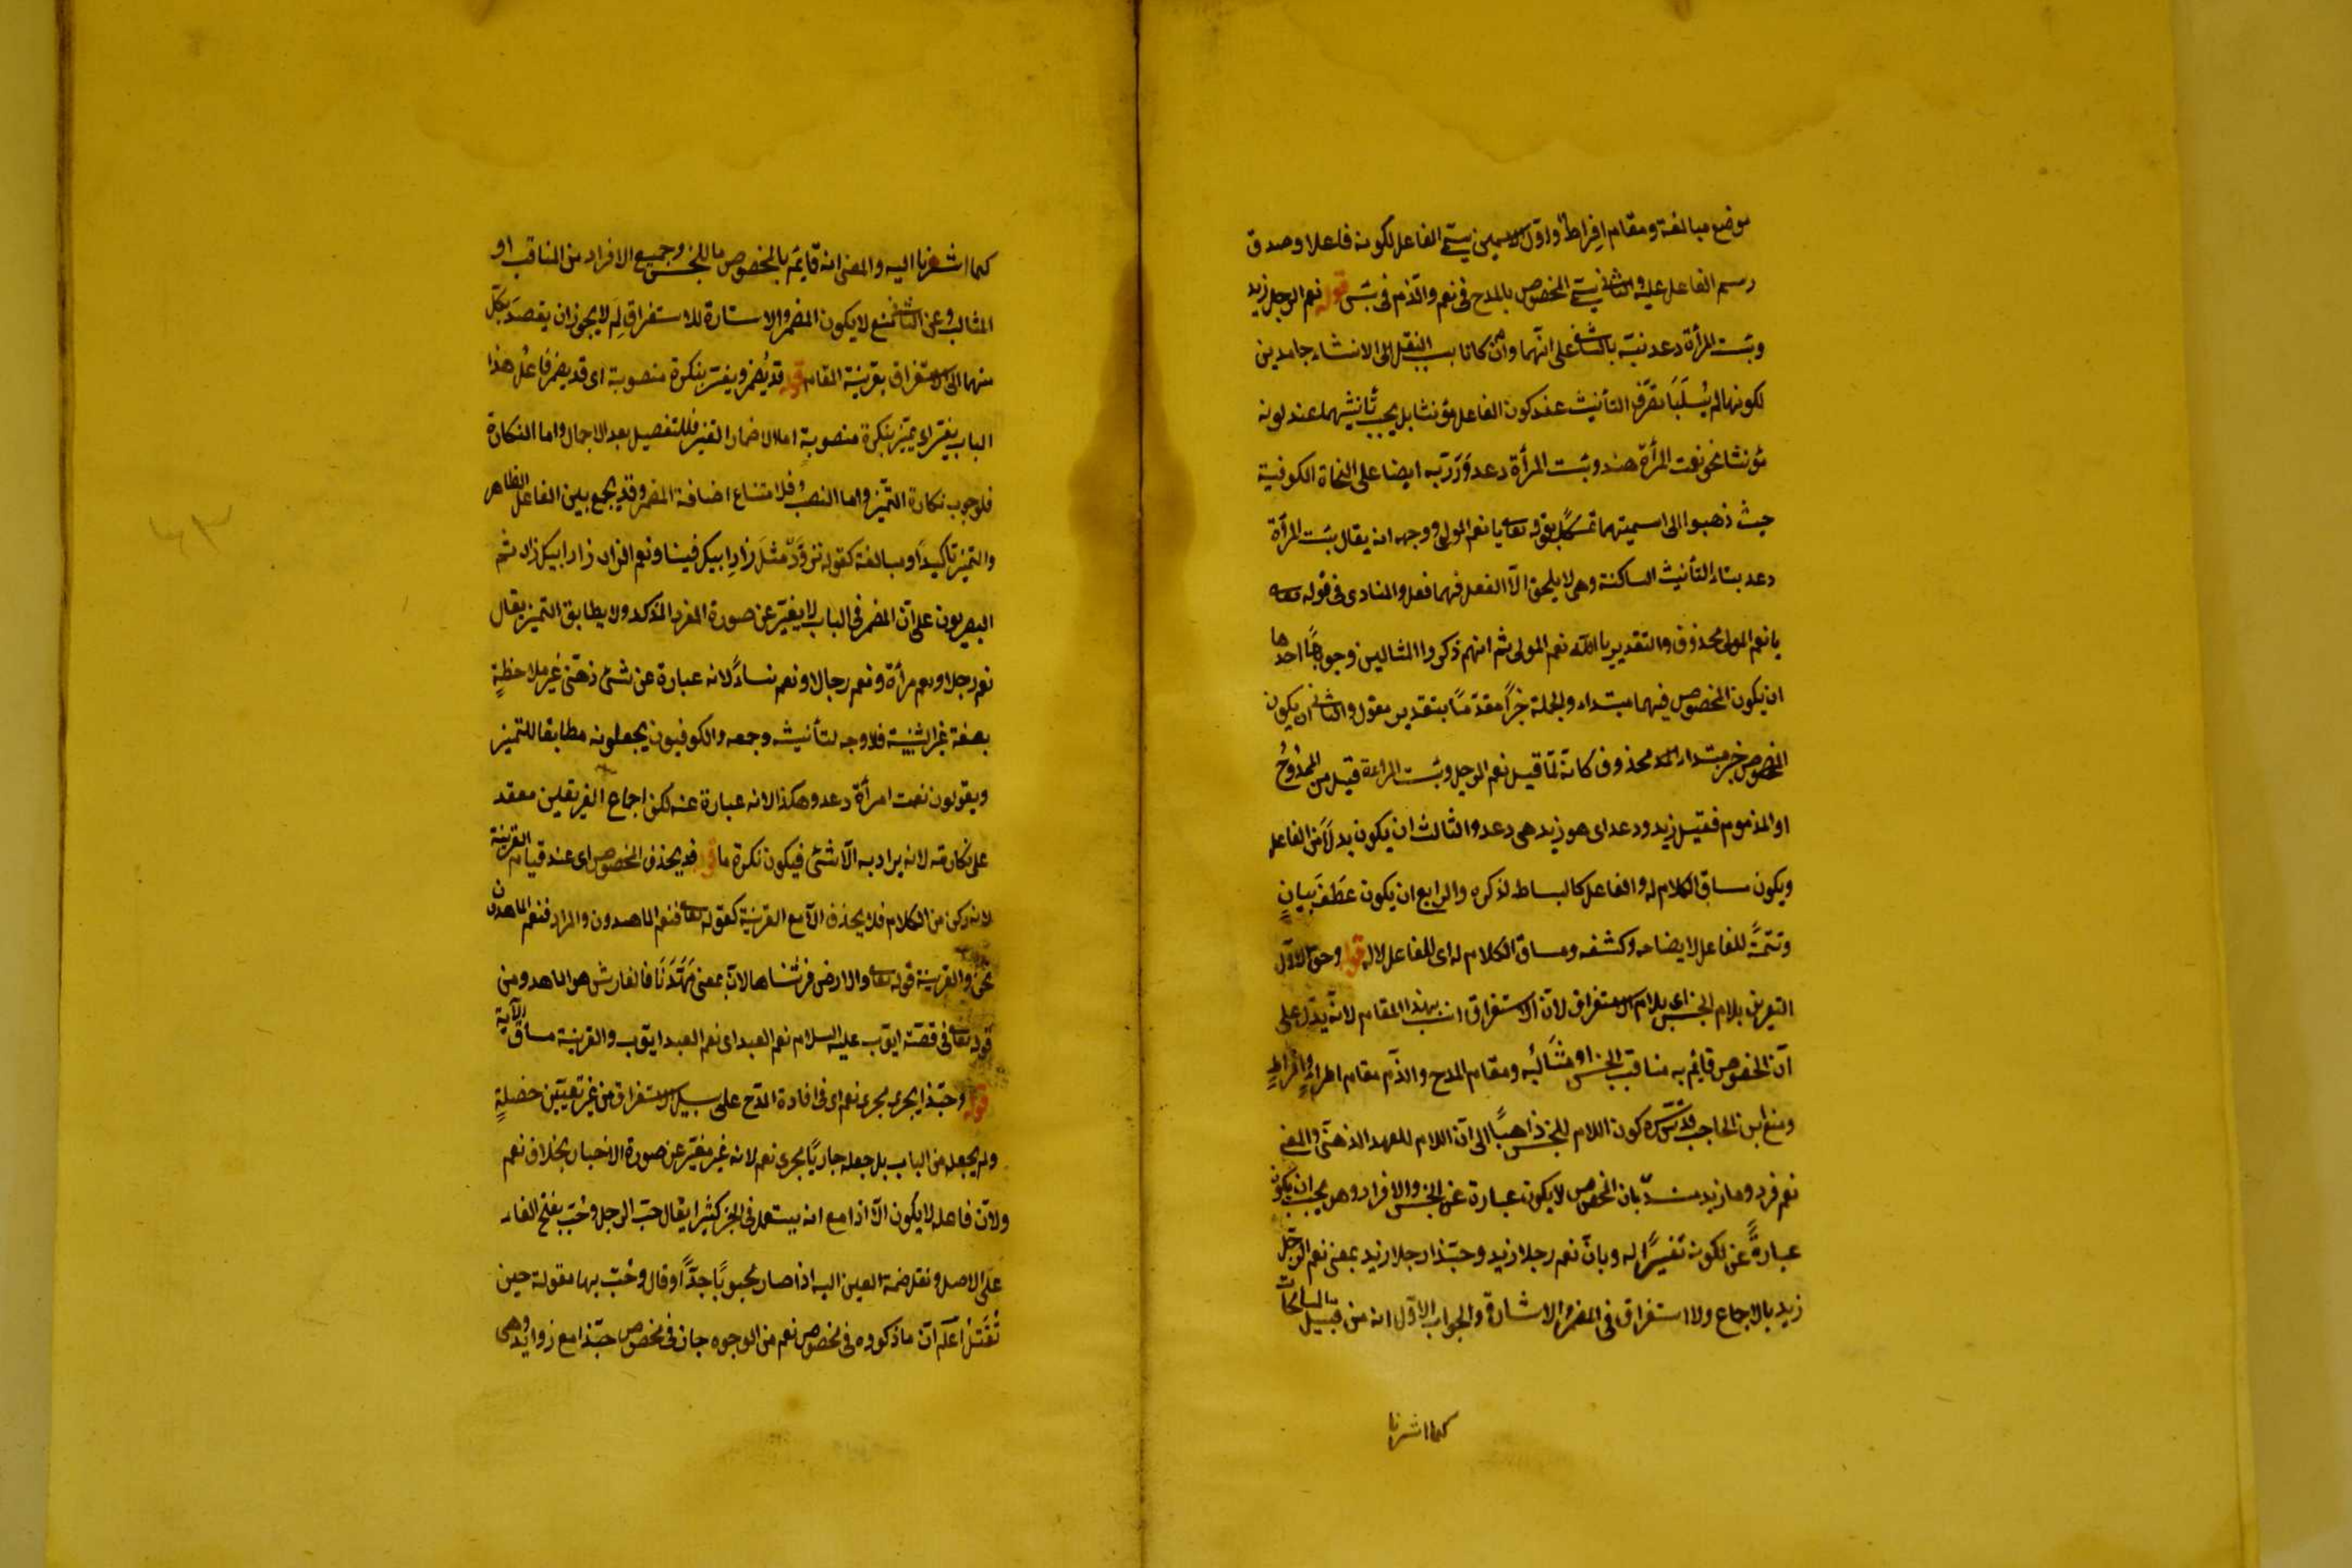 موضع مبالغة ومقام افراط واول الاسمين يسمى الفاعل لكونه فاعلا وصدق
رسم الفاعل عليه والثانى يسمى المخصوص بالمدح فى نعم والذم فى بئس قوله نعم الرجل زيد
وبئست المرأة دعد نبّه بالثانى على انّهما وان كانا بسبب النقل الى الانشاء جامدين
لكونهما لم يُسلَبا تصرّف التأنيث عند كون الفاعل مؤنثا بل يجب تأنيثهما عند كونه
مؤنثا نحو نعمت المرأة هند وبئست المرأة دعد وَرَدّ به ايضا على النحاة الكوفية
حيث ذهبوا الى اسميتهما تمسّكا بقوله تعالى يا نعم المولى ووجهه انه يقال بئست المرأة
دعد بتاء التأنيث الساكنة وهى لا يلحق الّا الفعل فهما فعل والمنادى فى قوله تعالى
يا نعم المولى محذوف والتقدير يا الله نعم المولى ثم انهم ذكروا المثالين وجوهًا احدها
ان يكون المخصوص فيهما مبتداء والجملة خبرًا مقدّمًا بتقدير مقول والثانى ان يكون
المخصوص خبر مبتداء محذوف كانه لمّا قيل نعم الرجل وبئست المراءة قيل من الممدوحُ
او المذموم فقيل زيد ودعد اى هو زيد هى دعد والثالث ان يكون بدلًا من الفاعل
ويكون مساق الكلام له والفاعل كالبساط لذكره والرابع ان يكون عطفَ بيانٍ
وتتمّةً للفاعل لايضاحه وكشفه ومساق الكلام له اى للفاعل لا له قوله وحق الاوّل
التعريف بلام الجنس اى بلام الاستغراق لانّ الاستغراق انسب بهذا المقام لانّه يدّل على
أنّ المخصوص قائم به مناقب الجنس او مثالبُه ومقام المدح والذّم مقام اطراءٍ وافراطٍ
ومنع ابن الحاجب قدّس سرّه كون اللام للجنس ذاهبًا الى انّ اللام للعهد الذهنّى والمعنى
نعم فرد وما زيد بان المخصوص لا يكون عبارة عن الجنس والافراد وهو يجب ان يكون
عبارةً عن لكونه تفسيرًا له وبانّ نعم رجلا زيد وحبّذا رجلا زيد بمعنى نعم الرجل
زيد بالاجماع ولا استغراق فى المضمر والاشارة والجواب الاوّل انه من قبيل المبالغات
كما اشرنا
كما اشرنا اليه والمعنى انه قايم بالمخصوص ما للجنس وجميع الافراد من المناقب او
المثالب وعن الثانى منع لا يكون المضمر والاستارة للاستغراق لِمَ لا يجوز ان يقصد بكلّ
منهما الى الاستغراق بقرينة المقام قوله قد يُضمر ويفسّر بنكرة منصوبة اى قد يضمر فاعُل هذا
الباب يفسّر اى يميّز بنكرة منصوبة اما الاضمار التفسير فللتفصيل بعد الاجمال واما النكارة
فلوجوب نكارة التمّيز واما النصب فلامتناع اضافة المضمر وقد يجمع بين الفاعل الظاهر
والتميز تأكيدًا ومبالغة كقوله تزوَّدْ مثلَ زادِ ابيك فينا ونعم الزاد زاد ابيك زادا ثم
البصريون على انّ المضمر فى الباب لا يغيّر عن صورة المفرد المذكر ولا يطابق التميز يقال
نعم رجلا ونعم مرأة ونعم رجالا ونعم نساءً لانه عبارة عن شئ ذهنّى غير ملاحظةٍ
بصفة غير الشيئية فلا وجه لتأنيثه وجمعه والكوفيون يجعلونه مطابقا للتميز
ويقولون نعمت امرأة دعد وهكذا لانه عبارة عنه لكن اجماع الفريقين معقد
على نكارته لانه يراد به الّا شئ فيكون نكرة ما قوله قد يحذف المخصوص اى عند قيام القرينة
لانه ركن من الكلام فلا يحذف الّا مع القرينة كقوله تعالى فنعم الماهدون والمراد فنعم الماهدون
نحن والقرينة قوله تعالى والارض فرشناها لانّه بمعنى مَهّدْنَا فالفارش هو الماهد ومن
قوله تعالى فى قصّة ايّوب عليه السلام نعم العبد اى نعم العبد ايّوب والقرينة مساق الآية
قوله وحبّذا يجرى مجرى نعم اى فى افادة المدح على سبيل الاستغراق من غير تعيين خصلةٍ
ولم يجعله من الباب بل جعله جاريًا مجرى نعم لانه غير مغيّر عن صورة الاخبار بخلاف نعم
ولانّ فاعله لا يكون الّا ذا مع انه يستعمل فى الخبر كثيرا يقال حبّ الرجل وحُبّ بفتح الفاء
على الاصل ونقل ضمة العين اليه اذا صار محبوبًا جدًّا وقال وحُبّ بها مقولة حين
تُقْتَل اعلم انّ ما ذكوره فى مخصوص نعم من الوجوه جاز فى مخصوص حبّذا مع زوايد وهى